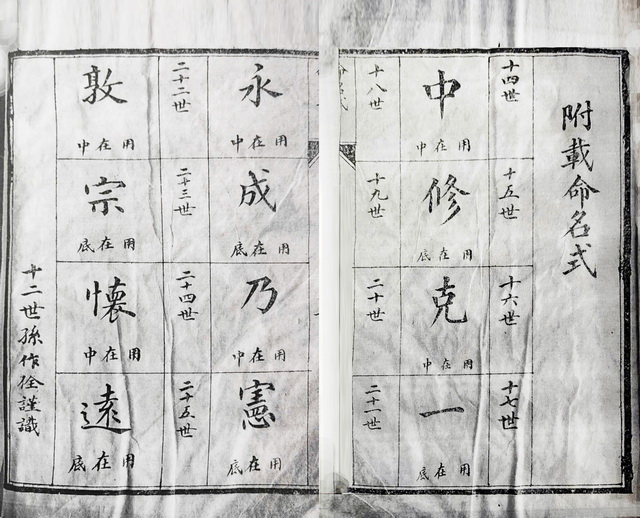 附載命名式
十四世
中
用在中
十五世
修
用在底
十六世
克
用在中
十七世
一
用在底
十八世
永
用在中
十九世
成
用在底
二十世
乃
用在中
二十一世
憲
用在底
二十二世
敦
用在中
二十三世
宗
用在底
二十四世
懷
用在中
二十五世
遠
用在底
十二世孫作謹識